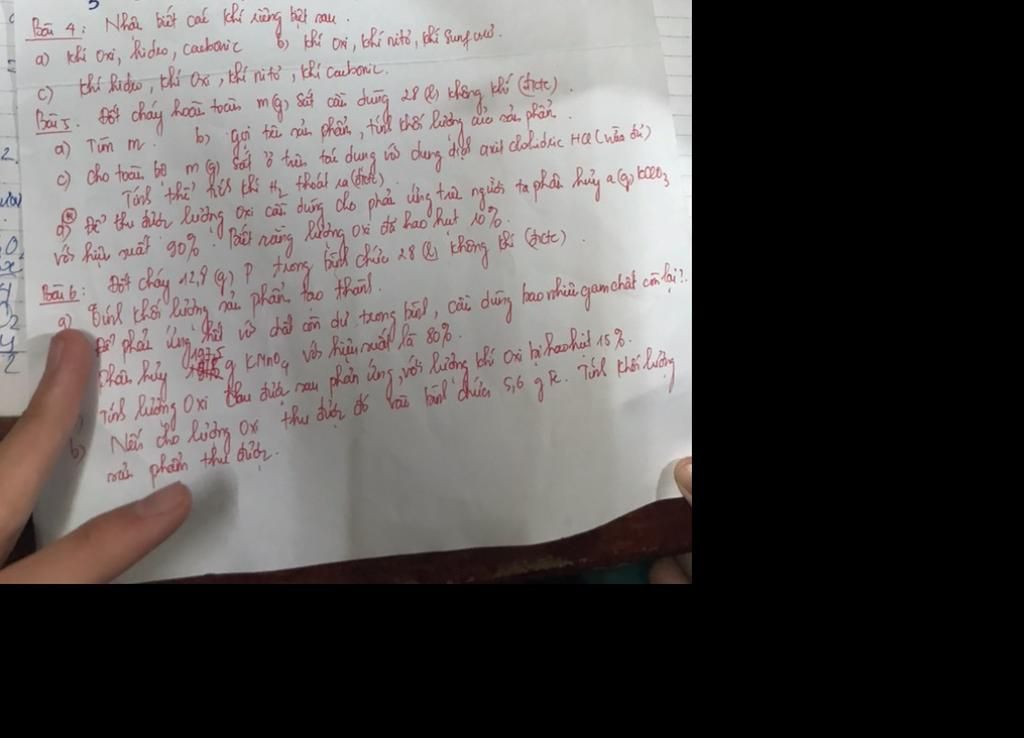 Bài 4: Nhận biết các khí riêng biệt sau.
a) khí oxi, hidro, cacbonic b) khí oxi, khí nitơ, khí sunfurơ.
c) khí hidro, khí oxi, khí nitơ, khí cacbonic.
Bài 5. Đốt cháy hoàn toàn m(g) sắt cần dùng 28 (l) không khí (đktc).
a) Tìm m. b) gọi tên sản phẩn, tính khối lượng của sản phẩn.
c) cho toàn bộ m (g) sắt ở trên tác dụng với dung dịch axit clohidric HCl (vừa đủ)
Tính thể tích khí H2 thoát ra (đktc).
d) Để thu được lượng oxi cần dùng cho phản ứng trên người ta phân hủy a (g) KClO3
với hiệu suất 90%. Biết rằng lượng oxi đó hao hụt 10%.
Bài 6: Đốt cháy 12,4 (g) P trong bình chứa 28 (l) không khí (đktc).
a) Tính khối lượng sản phẩn tạo thành.
Để phản ứng hết với chất còn dư trong bình, cần dùng bao nhiêu gam chất còn lại?
Phân hủy 19,75 g KMnO4 với hiệu suất là 80%.
Tính lượng oxi thu được sau phản ứng, với lượng khí oxi bị hao hụt 15%.
b) Nếu cho lượng oxi thu được đó vào bình chứa 5,6 g Fe. Tính khối lượng
sản phẩm thu được.